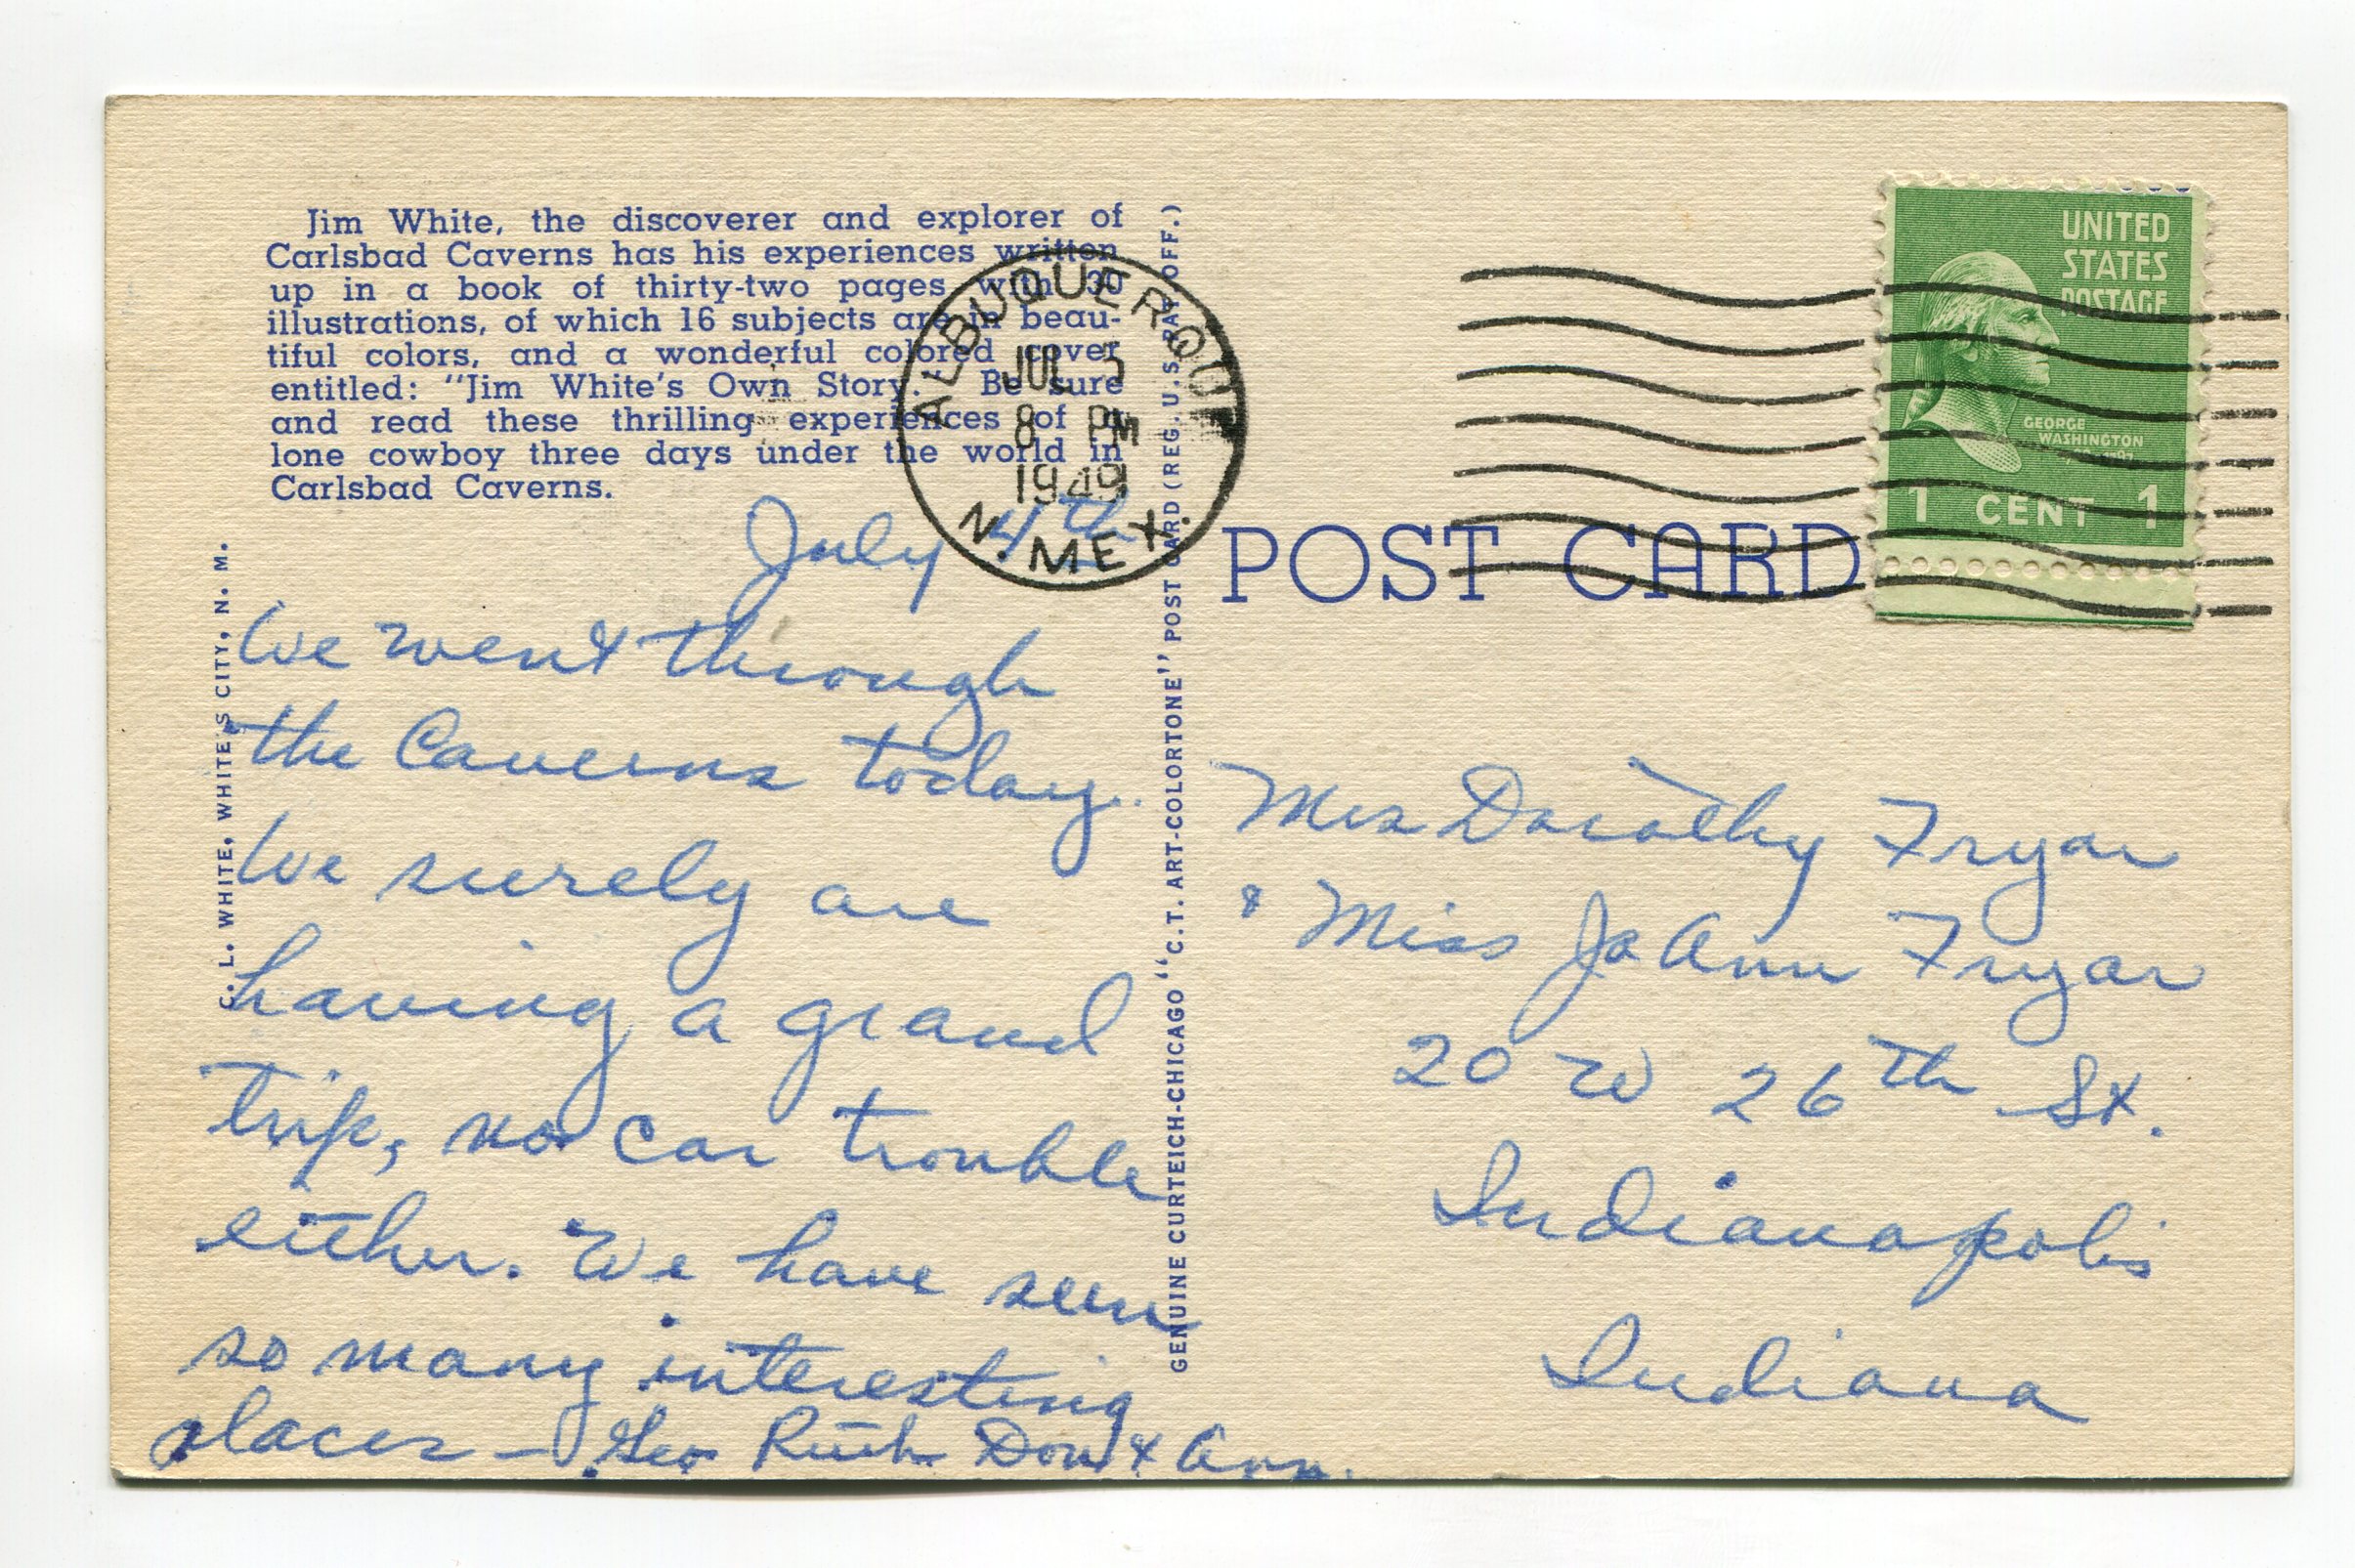 Jim White, the discoverer and explorer of
Carlsbad Caverns has his experiences written
up in a book of thirty-two pages with 30
illustrations, of which 16 subjects are in beau-
tiful colors, and a wonderful colored cover
entitled: "Jim White's Own Story." Be sure
and read these thrilling experiences of a
lone cowboy three days under the world in
Carlsbad Caverns.
C. L. WHITE, WHITE'S CITY, N. M.
July 4th
We went through
the Caverns today.
We surely are
having a grand
trip, no car trouble
either. We have seen
so many interesting
places — Geo Ruth Don & Ann.
GENUINE CURTEICH-CHICAGO "C.T. ART-COLORTONE" POST CARD (REG. U.S. PAT. OFF.)
ALBUQUERQUE
JUL 5
8 PM
1949
N. MEX.
POST CARD
UNITED
STATES
POSTAGE
GEORGE
WASHINGTON
1 CENT 1
Mrs Dorothy Fryar
& Miss Jo Ann Fryar
20 W 26th St.
Indianapolis
Indiana